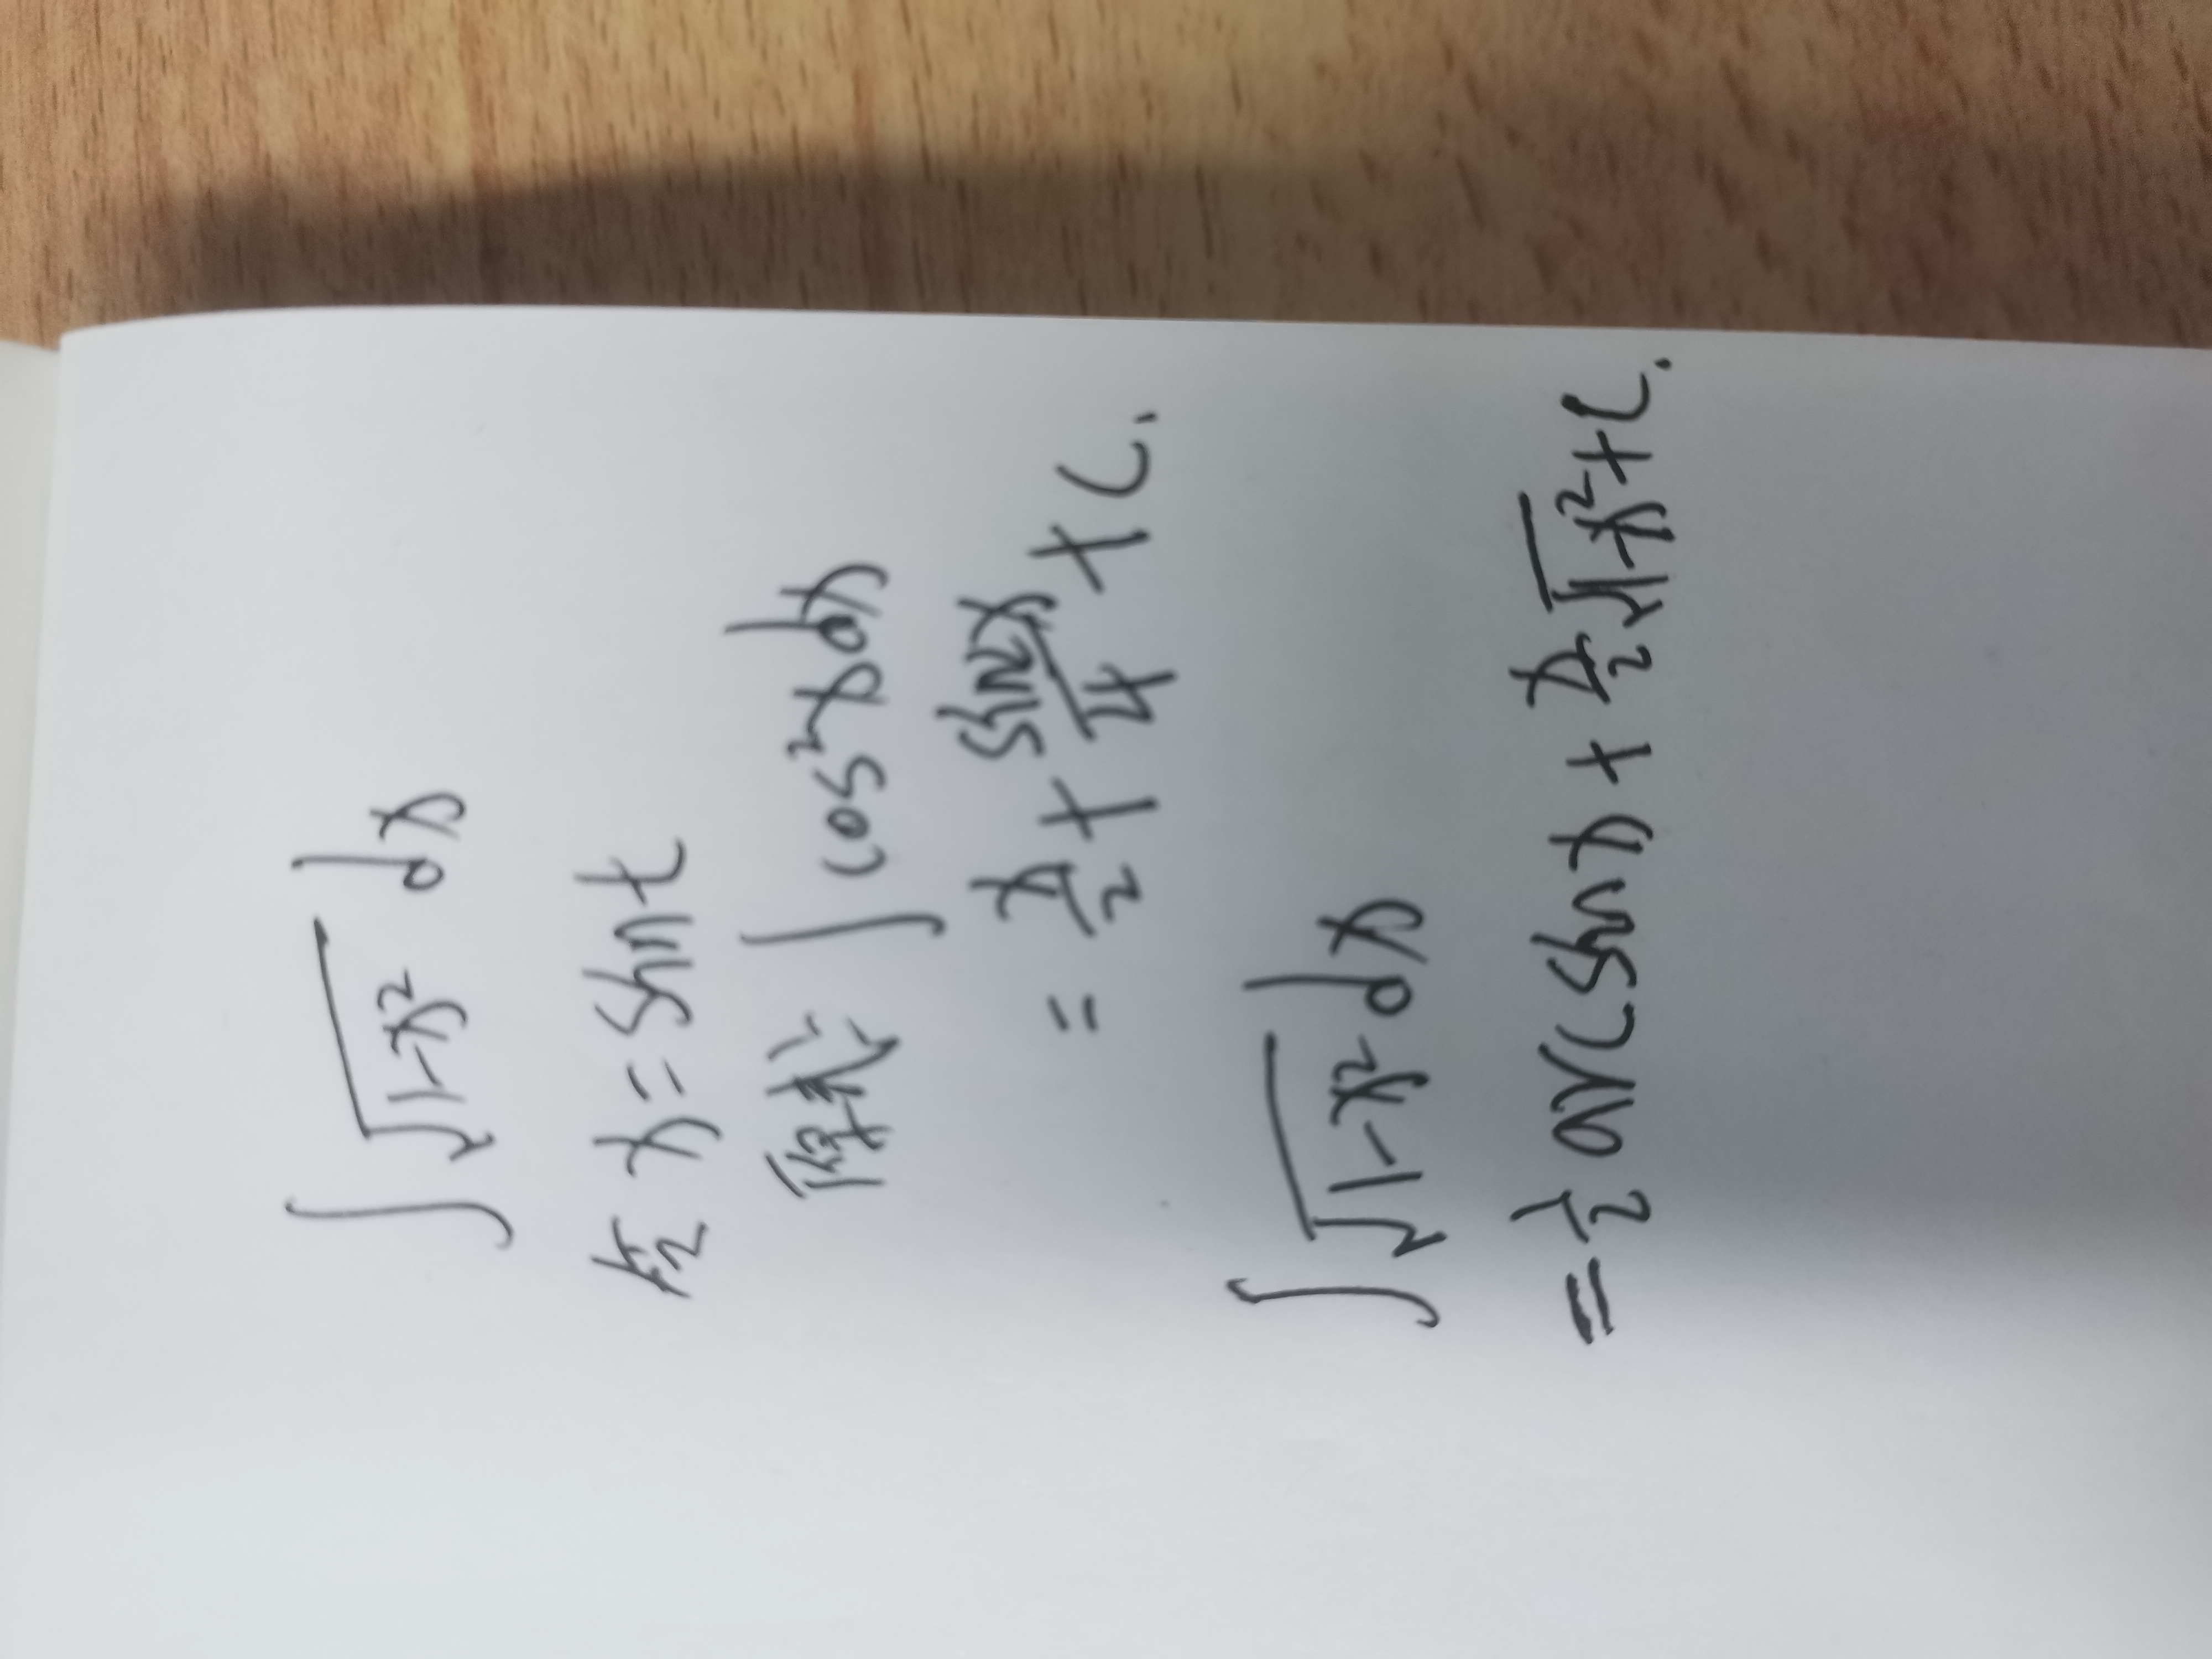 ∫√(1-x²) dx
令 x = sint
原式 = ∫ cos²x dx
= x/2 + sin2x/4 + C.
∫√(1-x²) dx
= 1/2 arcsinx + x/2 √(1-x²) + C.